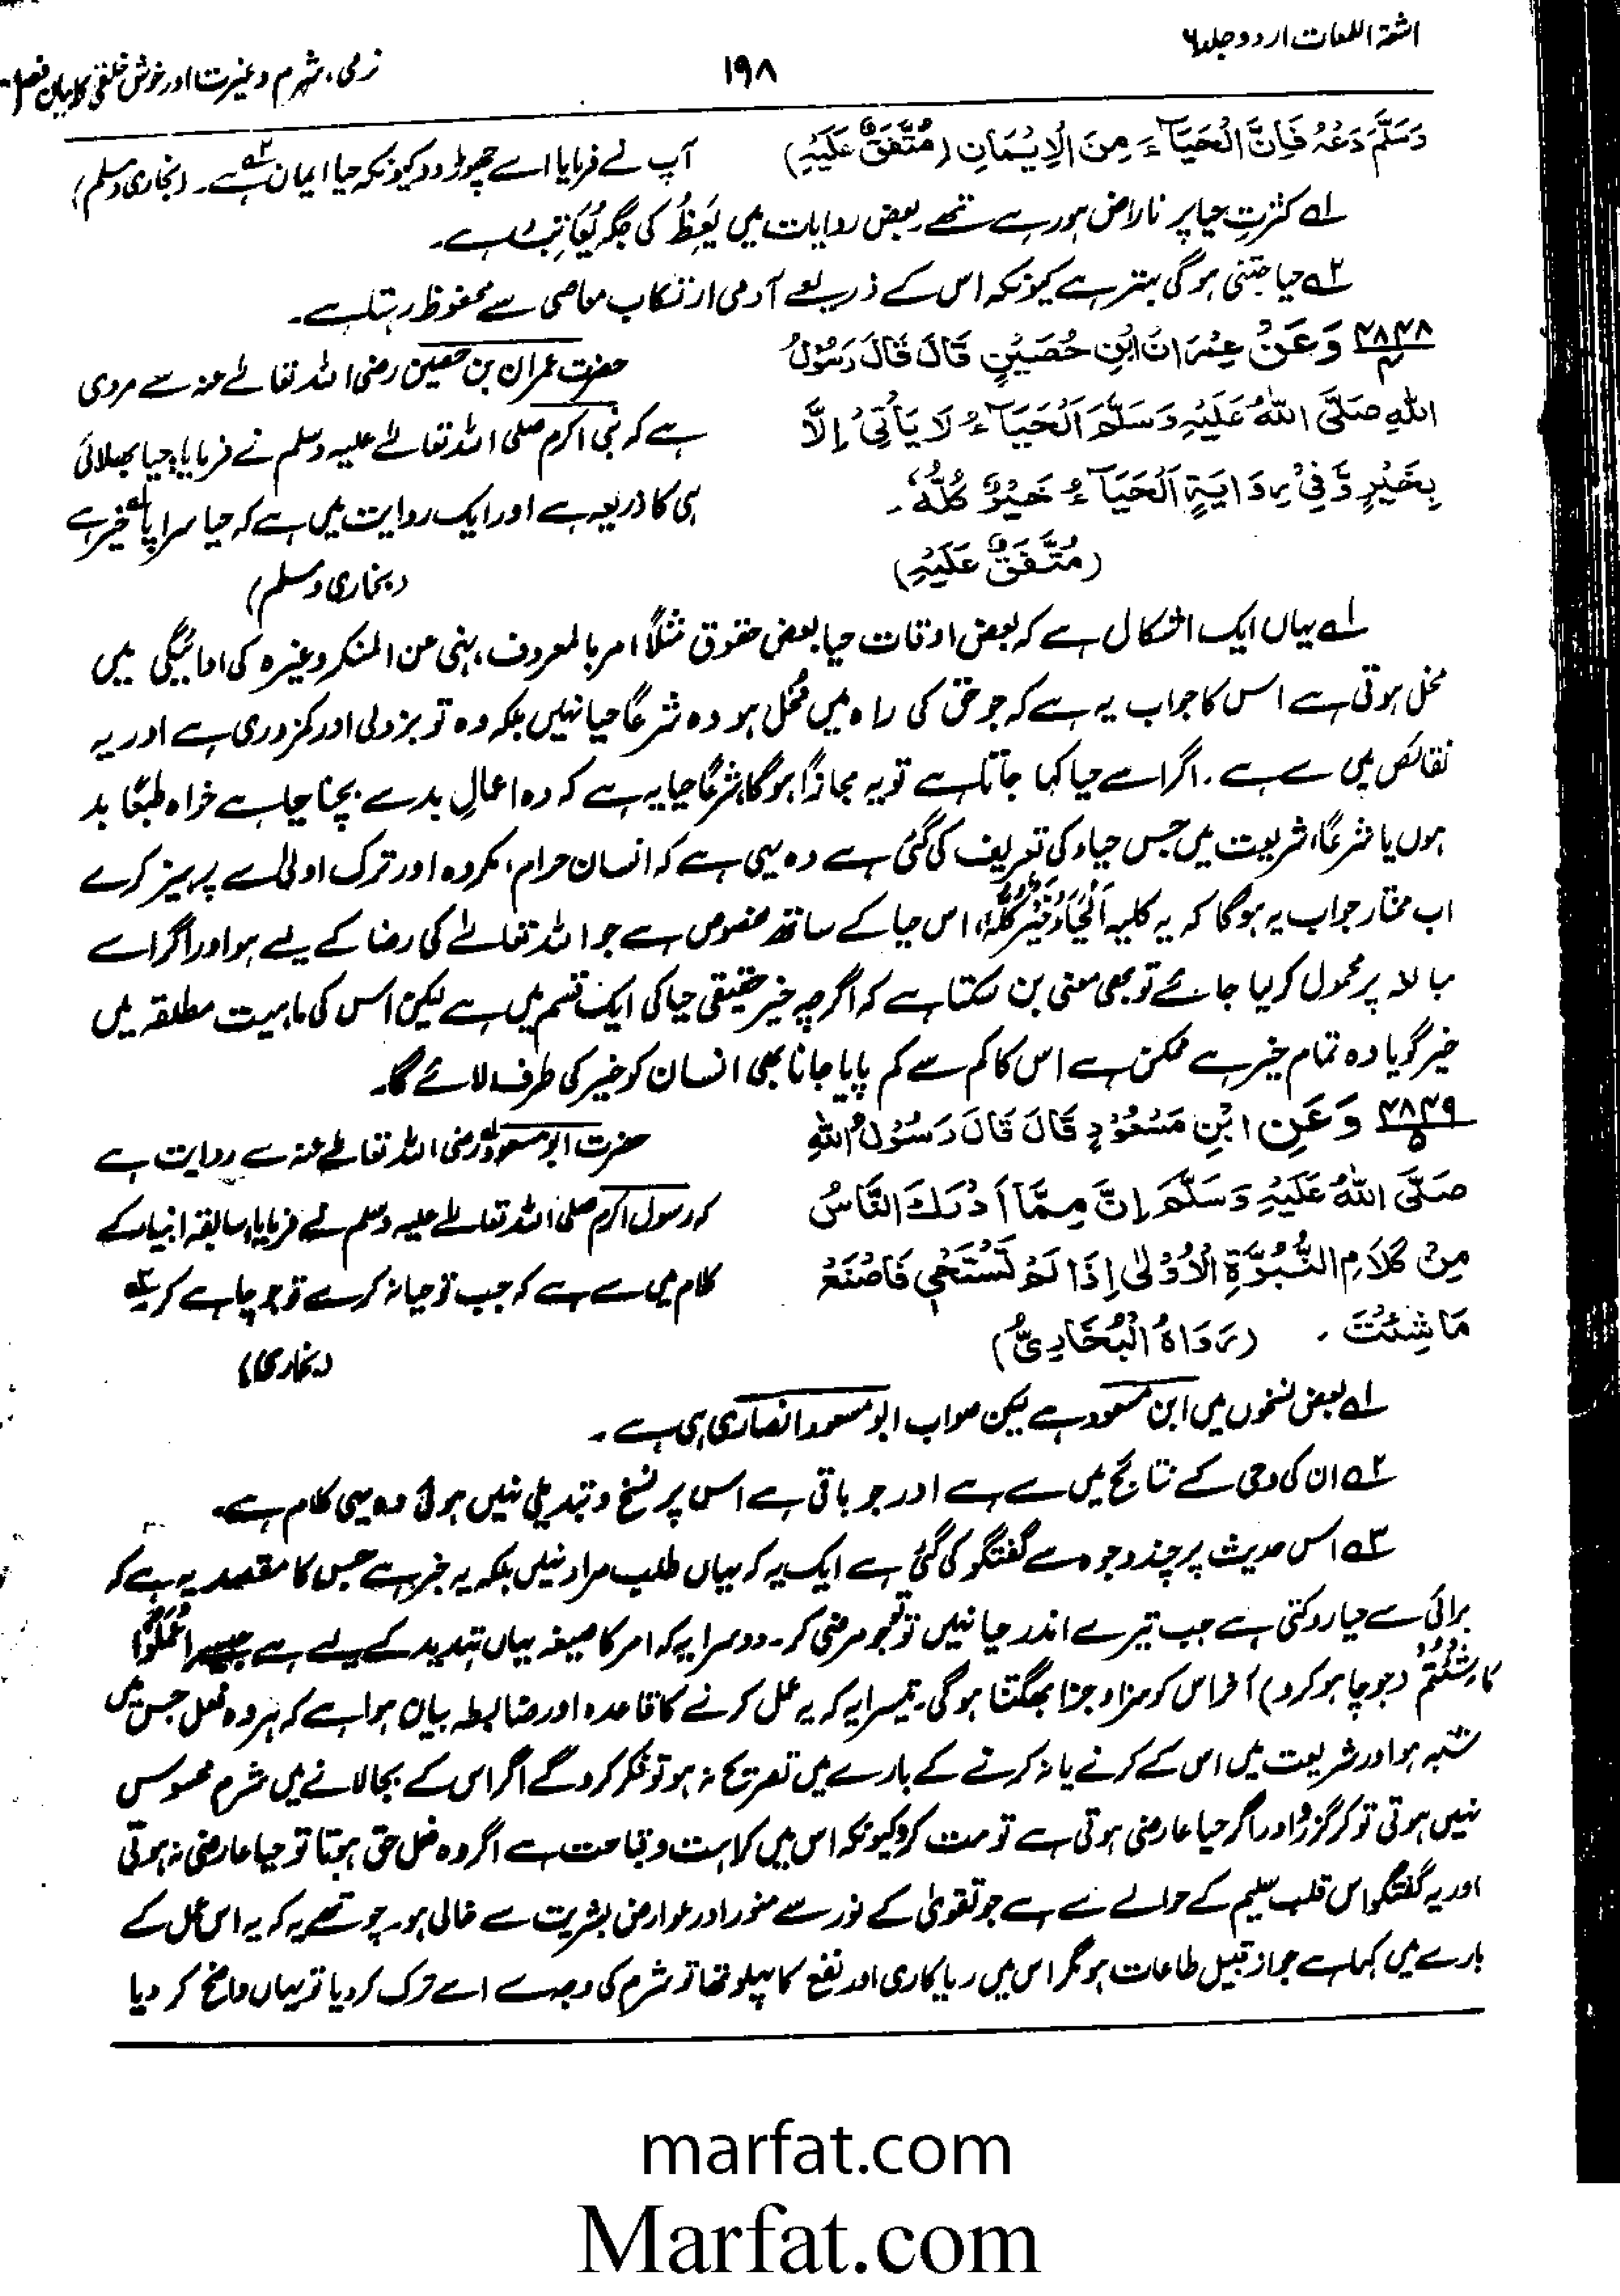 اشعۃ اللمعات اردو جلد ۶
۱۹۸
نرمی، شرم و غیرت اور خوش خلقی کا بیان فصل
وَسَلَّمَ دَعْهُ فَاِنَّ الْحَيَآءَ مِنَ الْاِيْمَانِ (مُتَّفَقٌ عَلَيْهِ)
آپ نے فرمایا اسے چھوڑ دو کیونکہ حیا ایمان ہے۔ (بخاری و مسلم)
۱؎ کثرتِ حیا پر ناراض ہو رہے تھے بعض روایات میں یَعِظُ کی جگہ یُعَاتِبُ ہے۔
۲؎ حیا جتنی ہو گی بہتر ہے کیونکہ اس کے ذریعے آدمی ارتکاب معاصی سے محفوظ رہتا ہے۔
۴۸۴۸ وَعَنْ عِمْرَانَ ابْنِ حُصَيْنٍ قَالَ قَالَ رَسُوْلُ
اللهِ صَلَّى اللهُ عَلَيْهِ وَسَلَّمَ اَلْحَيَآءُ لَا يَأْتِيْ اِلَّا
بِخَيْرٍ وَّفِيْ رِوَايَةٍ اَلْحَيَآءُ خَيْرٌ كُلُّهٗ۔
(مُتَّفَقٌ عَلَيْهِ)
حضرت عمران بن حصین رضی اللہ تعالےٰ عنہ سے مروی
ہے کہ نبی اکرم صلی اللہ تعالےٰ علیہ وسلم نے فرمایا، حیا بھلائی
ہی کا ذریعہ ہے اور ایک روایت میں ہے کہ حیا سراپا ۱؎ خیر ہے
(بخاری و مسلم)
۱؎ یہاں ایک اشکال ہے کہ بعض اوقات حیا بعض حقوق مثلاً امر بالمعروف، نہی عن المنکر وغیرہ کی ادائیگی میں
مخل ہوتی ہے اس کا جواب یہ ہے کہ جو حق کی راہ میں مُخل ہو وہ شرعًا حیا نہیں بلکہ وہ تو بزدلی اور کمزوری ہے اور یہ
نقائص میں سے ہے۔ اگر اسے حیا کہا جاتا ہے تو یہ مجازًا ہو گا شرعًا حیا یہ ہے کہ وہ اعمالِ بد سے بچنا چاہے خواہ طبعًا بد
ہوں یا شرعًا، شریعت میں جس حیاء کی تعریف کی گئی ہے وہ یہی ہے کہ انسان حرام، مکروہ اور ترک اولیٰ سے پرہیز کرے
اب مختار جواب یہ ہو گا کہ یہ کلیہ اَلْحَیَاءُ خَیْرٌ کُلُّهٗ، اس حیا کے ساتھ مخصوص ہے جو اللہ تعالےٰ کی رضا کے لیے ہو اور اگر اسے
مبالغہ پر محمول کر لیا جائے تو بھی معنی بن سکتا ہے کہ اگرچہ خیر حقیقی حیا کی ایک قسم میں ہے لیکن اس کی ماہیت مطلقہ میں
خیر گویا وہ تمام خیر ہے ممکن ہے اس کا کم سے کم پایا جانا بھی انسان کو خیر کی طرف لائے گا۔
۴۸۴۹ وَعَنِ ابْنِ مَسْعُوْدٍ قَالَ قَالَ رَسُوْلُ اللهِ
صَلَّى اللهُ عَلَيْهِ وَسَلَّمَ اِنَّ مِمَّا اَدْرَكَ النَّاسُ
مِنْ كَلَامِ النُّبُوَّةِ الْاُوْلٰى اِذَا لَمْ تَسْتَحْيِ فَاصْنَعْ
مَا شِئْتَ۔ (رَوَاهُ الْبُخَارِيُّ)
حضرت ابو مسعود ۱؎ رضی اللہ تعالےٰ عنہ سے روایت ہے
کہ رسول اکرم صلی اللہ تعالےٰ علیہ وسلم نے فرمایا، سابقہ انبیاء کے
کلام میں سے ہے کہ جب تو حیا نہ کرے تو جو چاہے کر ۳؎
(بخاری)
۱؎ بعض نسخوں میں ابن مسعود ہے لیکن صواب ابو مسعود انصاری ہی ہے۔
۲؎ ان کی وحی کے نتائج میں سے ہے اور جو باقی ہے اس پر نسخ و تبدیلی نہیں ہوئی وہ یہی کلام ہے۔
۳؎ اس حدیث پر چند وجوہ سے گفتگو کی گئی ہے ایک یہ کہ یہاں طلب مراد نہیں بلکہ یہ خبر ہے جس کا مقصد یہ ہے کہ
برائی سے حیا روکتی ہے جب تیرے اندر حیا نہیں تو جو مرضی کر۔ دوسرا یہ کہ امر کا صیغہ یہاں تہدید کے لیے ہے جیسے اِعْمَلُوْا
مَا شِئْتُمْ (جو چاہو کرو) آخر اس کو سزا و جزا بھگتنا ہو گی۔ تیسرا یہ کہ یہ عمل کرنے کا قاعدہ اور ضابطہ بیان ہوا ہے کہ ہر وہ فعل جس میں
شبہ ہو اور شریعت میں اس کے کرنے یا نہ کرنے کے بارے میں تصریح نہ ہو تو فکر کرو گے اگر اس کے بجا لانے میں شرم محسوس
نہیں ہوتی تو کر گزرو اور اگر حیا عارض ہوتی ہے تو مت کرو کیونکہ اس میں کراہت و قباحت ہے اگر وہ فعل حق ہوتا تو حیا عارض نہ ہوتی
اور یہ گفتگو اس قلب سلیم کے حوالے سے ہے جو تقویٰ کے نور سے منور اور عوارض بشریت سے خالی ہو۔ چوتھے یہ کہ یہ اس عمل کے
بارے میں کہا ہے جو از قبیل طاعات ہو مگر اس میں ریا کاری اور نفع کا پہلو تھا تو شرم کی وجہ سے اسے ترک کر دیا تو یہاں واضح کر دیا
marfat.com
Marfat.com